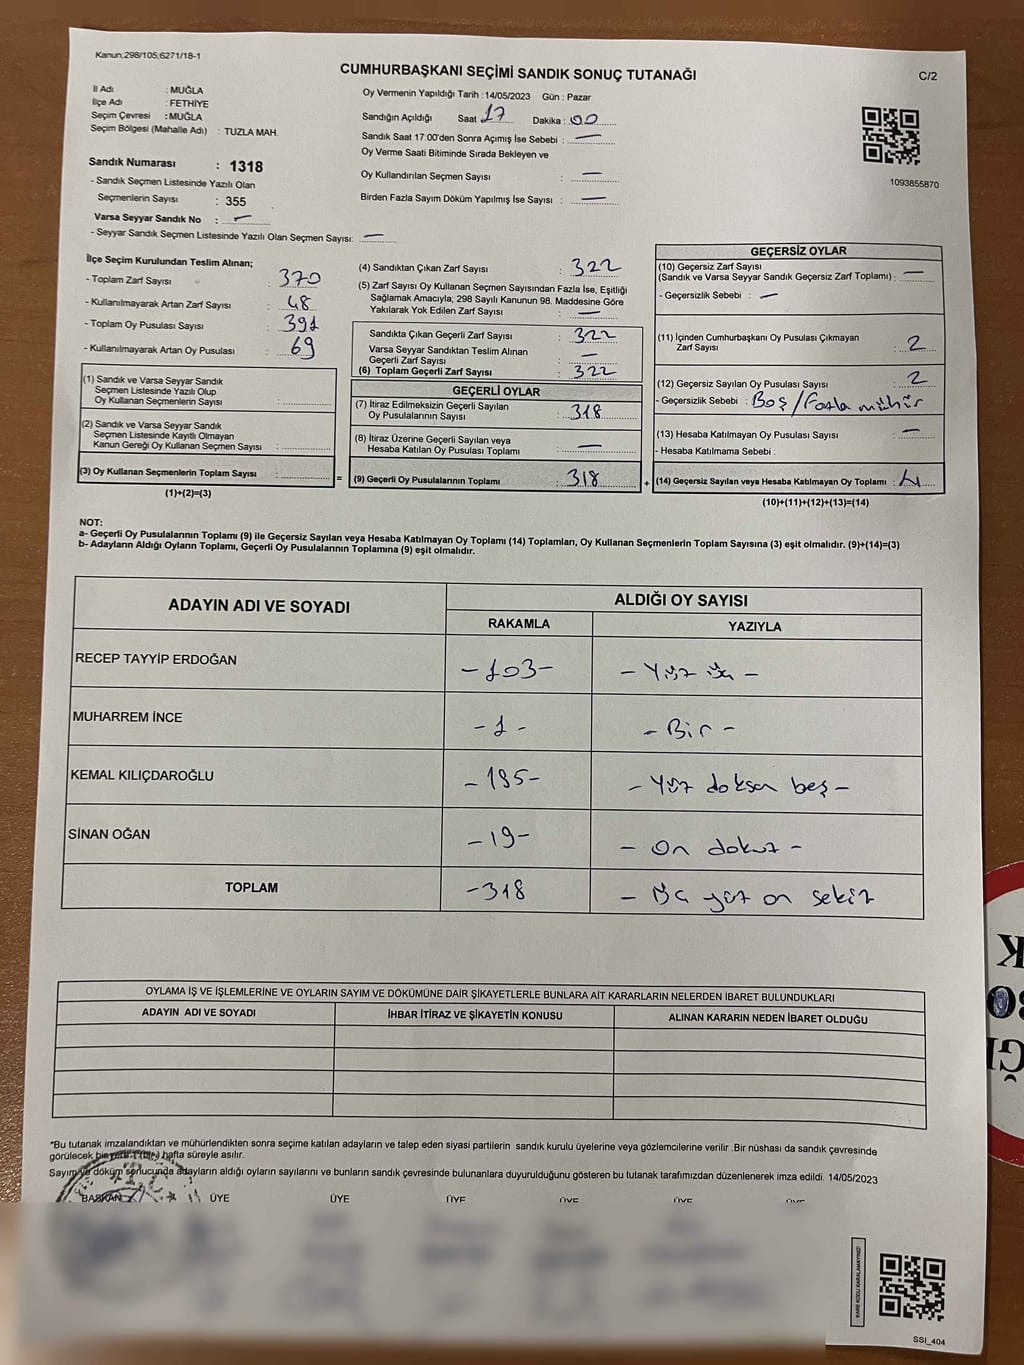 Kanun:298/105;6271/18-1
CUMHURBAŞKANI SEÇİMİ SANDIK SONUÇ TUTANAĞI
C/2
İl Adı : MUĞLA
İlçe Adı : FETHİYE
Seçim Çevresi : MUĞLA
Seçim Bölgesi (Mahalle Adı) : TUZLA MAH.
Oy Vermenin Yapıldığı Tarih : 14/05/2023 Gün : Pazar
Sandığın Açıldığı Saat 17 Dakika : 00
Sandık Saat 17:00'den Sonra Açımış İse Sebebi : —
Oy Verme Saati Bitiminde Sırada Bekleyen ve
Oy Kullandırılan Seçmen Sayısı : —
Birden Fazla Sayım Döküm Yapılmış İse Sayısı : —
1093855870
Sandık Numarası : 1318
- Sandık Seçmen Listesinde Yazılı Olan
Seçmenlerin Sayısı : 355
Varsa Seyyar Sandık No : —
- Seyyar Sandık Seçmen Listesinde Yazılı Olan Seçmen Sayısı: —
İlçe Seçim Kurulundan Teslim Alınan;
- Toplam Zarf Sayısı : 370
- Kullanılmayarak Artan Zarf Sayısı : 48
- Toplam Oy Pusulası Sayısı : 391
- Kullanılmayarak Artan Oy Pusulası : 69
(1) Sandık ve Varsa Seyyar Sandık
Seçmen Listesinde Yazılı Olup
Oy Kullanan Seçmenlerin Sayısı :
(2) Sandık ve Varsa Seyyar Sandık
Seçmen Listesinde Kayıtlı Olmayan
Kanun Gereği Oy Kullanan Seçmen Sayısı :
(3) Oy Kullanan Seçmenlerin Toplam Sayısı :
(1)+(2)=(3)
=
(4) Sandıktan Çıkan Zarf Sayısı : 322
(5) Zarf Sayısı Oy Kullanan Seçmen Sayısından Fazla İse, Eşitliği
Sağlamak Amacıyla; 298 Sayılı Kanunun 98. Maddesine Göre
Yakılarak Yok Edilen Zarf Sayısı : —
Sandıkta Çıkan Geçerli Zarf Sayısı : 322
Varsa Seyyar Sandıktan Teslim Alınan
Geçerli Zarf Sayısı : —
(6) Toplam Geçerli Zarf Sayısı : 322
GEÇERLİ OYLAR
(7) İtiraz Edilmeksizin Geçerli Sayılan
Oy Pusulalarının Sayısı : 318
(8) İtiraz Üzerine Geçerli Sayılan veya
Hesaba Katılan Oy Pusulası Toplamı : —
(9) Geçerli Oy Pusulalarının Toplamı : 318
+
GEÇERSİZ OYLAR
(10) Geçersiz Zarf Sayısı
(Sandık ve Varsa Seyyar Sandık Geçersiz Zarf Toplamı) : —
- Geçersizlik Sebebi : —
(11) İçinden Cumhurbaşkanı Oy Pusulası Çıkmayan
Zarf Sayısı : 2
(12) Geçersiz Sayılan Oy Pusulası Sayısı : 2
- Geçersizlik Sebebi : Boş/Fazla mühür
(13) Hesaba Katılmayan Oy Pusulası Sayısı : —
- Hesaba Katılmama Sebebi :
(14) Geçersiz Sayılan veya Hesaba Katılmayan Oy Toplamı : 4
(10)+(11)+(12)+(13)=(14)
NOT:
a- Geçerli Oy Pusulalarının Toplamı (9) ile Geçersiz Sayılan veya Hesaba Katılmayan Oy Toplamı (14) Toplamları, Oy Kullanan Seçmenlerin Toplam Sayısına (3) eşit olmalıdır. (9)+(14)=(3)
b- Adayların Aldığı Oyların Toplamı, Geçerli Oy Pusulalarının Toplamına (9) eşit olmalıdır.
ADAYIN ADI VE SOYADI ALDIĞI OY SAYISI
RAKAMLA YAZIYLA
RECEP TAYYİP ERDOĞAN -103- - Yüz üç -
MUHARREM İNCE -1- - Bir -
KEMAL KILIÇDAROĞLU -195- - Yüz doksan beş -
SİNAN OĞAN -19- - On dokuz -
TOPLAM -318 - Üç yüz on sekiz
OYLAMA İŞ VE İŞLEMLERİNE VE OYLARIN SAYIM VE DÖKÜMÜNE DAİR ŞİKAYETLERLE BUNLARA AİT KARARLARIN NELERDEN İBARET BULUNDUKLARI
ADAYIN ADI VE SOYADI İHBAR İTİRAZ VE ŞİKAYETİN KONUSU ALINAN KARARIN NEDEN İBARET OLDUĞU
*Bu tutanak imzalandıktan ve mühürlendikten sonra seçime katılan adayların ve talep eden siyasi partilerin sandık kurulu üyelerine veya gözlemcilerine verilir .Bir nüshası da sandık çevresinde
görülecek bir yere 1 (bir) hafta süreyle asılır.
Sayım ve döküm sonucunda adayların aldığı oyların sayılarını ve bunların sandık çevresinde bulunanlara duyurulduğunu gösteren bu tutanak tarafımızdan düzenlenerek imza edildi. 14/05/2023
BAŞKAN ÜYE ÜYE ÜYE ÜYE ÜYE ÜYE
T.C.
KARE KODU KARALAMAYINIZ!
SSI_404